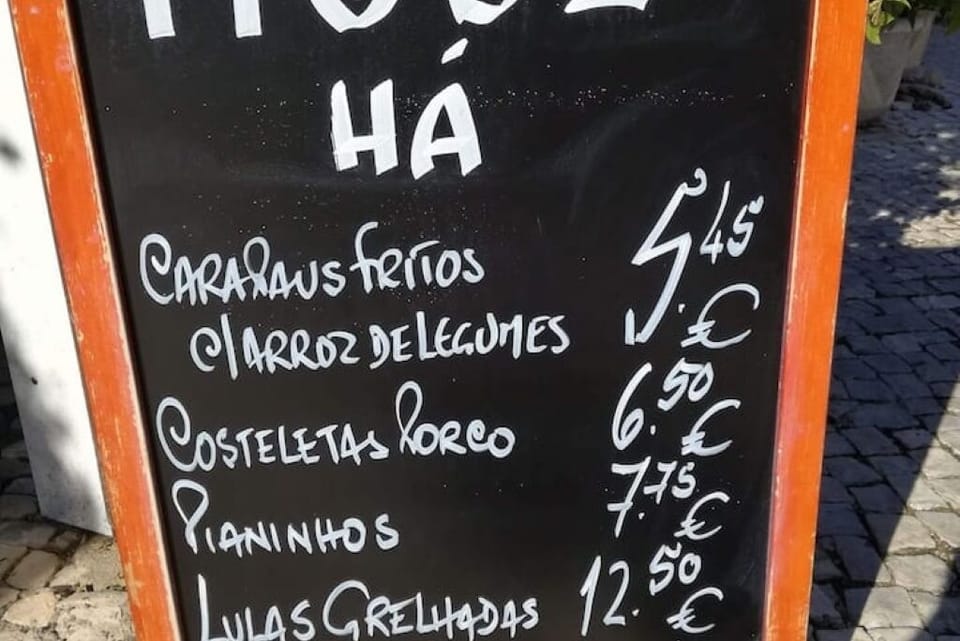 HÁ
CARAPAUS FRITOS 5.45 €
C/ ARROZ DE LEGUMES
COSTELETAS PORCO 6.50 €
PIANINHOS 7.75 €
LULAS GRELHADAS 12.50 €